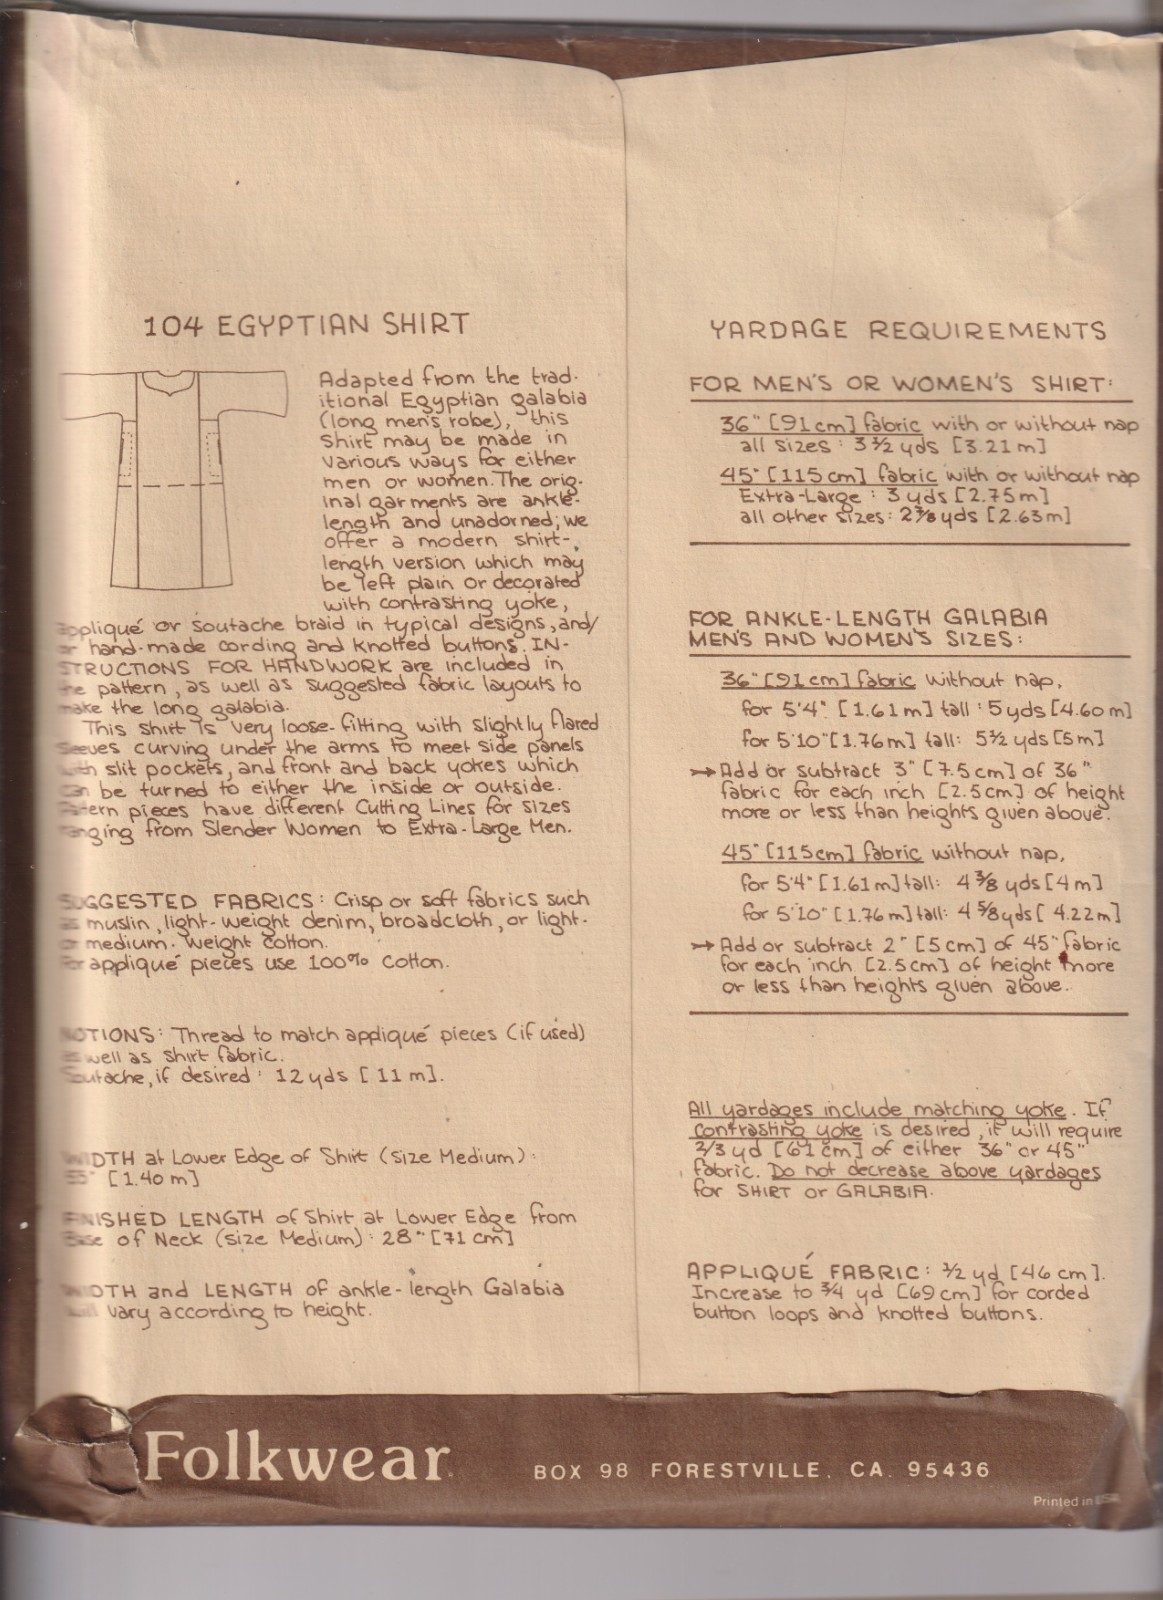 104 EGYPTIAN SHIRT
Adapted from the trad-
itional Egyptian galabia
(long men's robe), this
shirt may be made in
various ways for either
men or women. The orig-
inal garments are ankle-
length and unadorned; we
offer a modern shirt-
length version which may
be left plain or decorated
with contrasting yoke,
appliqué or soutache braid in typical designs, and/
or hand-made cording and knotted buttons. IN-
STRUCTIONS FOR HANDWORK are included in
the pattern, as well as suggested fabric layouts to
make the long galabia.
This shirt is very loose-fitting with slightly flared
sleeves curving under the arms to meet side panels
with slit pockets, and front and back yokes which
can be turned to either the inside or outside.
Pattern pieces have different Cutting Lines for sizes
ranging from Slender Women to Extra-Large Men.
SUGGESTED FABRICS: Crisp or soft fabrics such
as muslin, light-weight denim, broadcloth, or light-
or medium-weight cotton.
For appliqué pieces use 100% cotton.
NOTIONS: Thread to match appliqué pieces (if used)
as well as shirt fabric.
Soutache, if desired: 12 yds [11 m].
WIDTH at Lower Edge of Shirt (size Medium):
55" [1.40 m]
FINISHED LENGTH of Shirt at Lower Edge from
Base of Neck (size Medium): 28" [71 cm]
WIDTH and LENGTH of ankle-length Galabia
will vary according to height.
YARDAGE REQUIREMENTS
FOR MEN'S OR WOMEN'S SHIRT:
36" [91cm] fabric with or without nap
all sizes: 3 1/2 yds [3.21 m]
45" [115 cm] fabric with or without nap
Extra-Large: 3 yds [2.75m]
all other sizes: 2 7/8 yds [2.63m]
FOR ANKLE-LENGTH GALABIA
MEN'S AND WOMEN'S SIZES:
36" [91cm] fabric without nap,
for 5'4" [1.61m] tall: 5 yds [4.60 m]
for 5'10" [1.76m] tall: 5 1/2 yds [5m]
→ Add or subtract 3" [7.5cm] of 36"
fabric for each inch [2.5cm] of height
more or less than heights given above.
45" [115cm] fabric without nap,
for 5'4" [1.61m] tall: 4 3/8 yds [4m]
for 5'10" [1.76m] tall: 4 5/8 yds [4.22m]
→ Add or subtract 2" [5cm] of 45" fabric
for each inch [2.5cm] of height more
or less than heights given above.
All yardages include matching yoke. If
contrasting yoke is desired, it will require
2/3 yd [61 cm] of either 36" or 45"
fabric. Do not decrease above yardages
for SHIRT or GALABIA.
APPLIQUÉ FABRIC: 1/2 yd [46 cm].
Increase to 3/4 yd [69cm] for corded
button loops and knotted buttons.
Folkwear
BOX 98 FORESTVILLE, CA. 95436
Printed in USA